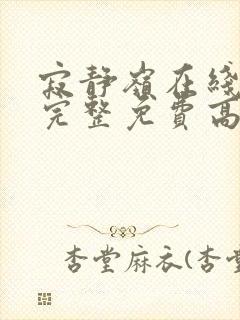 寂静嶺在綫
完整免費高
杏堂麻衣(杏堂